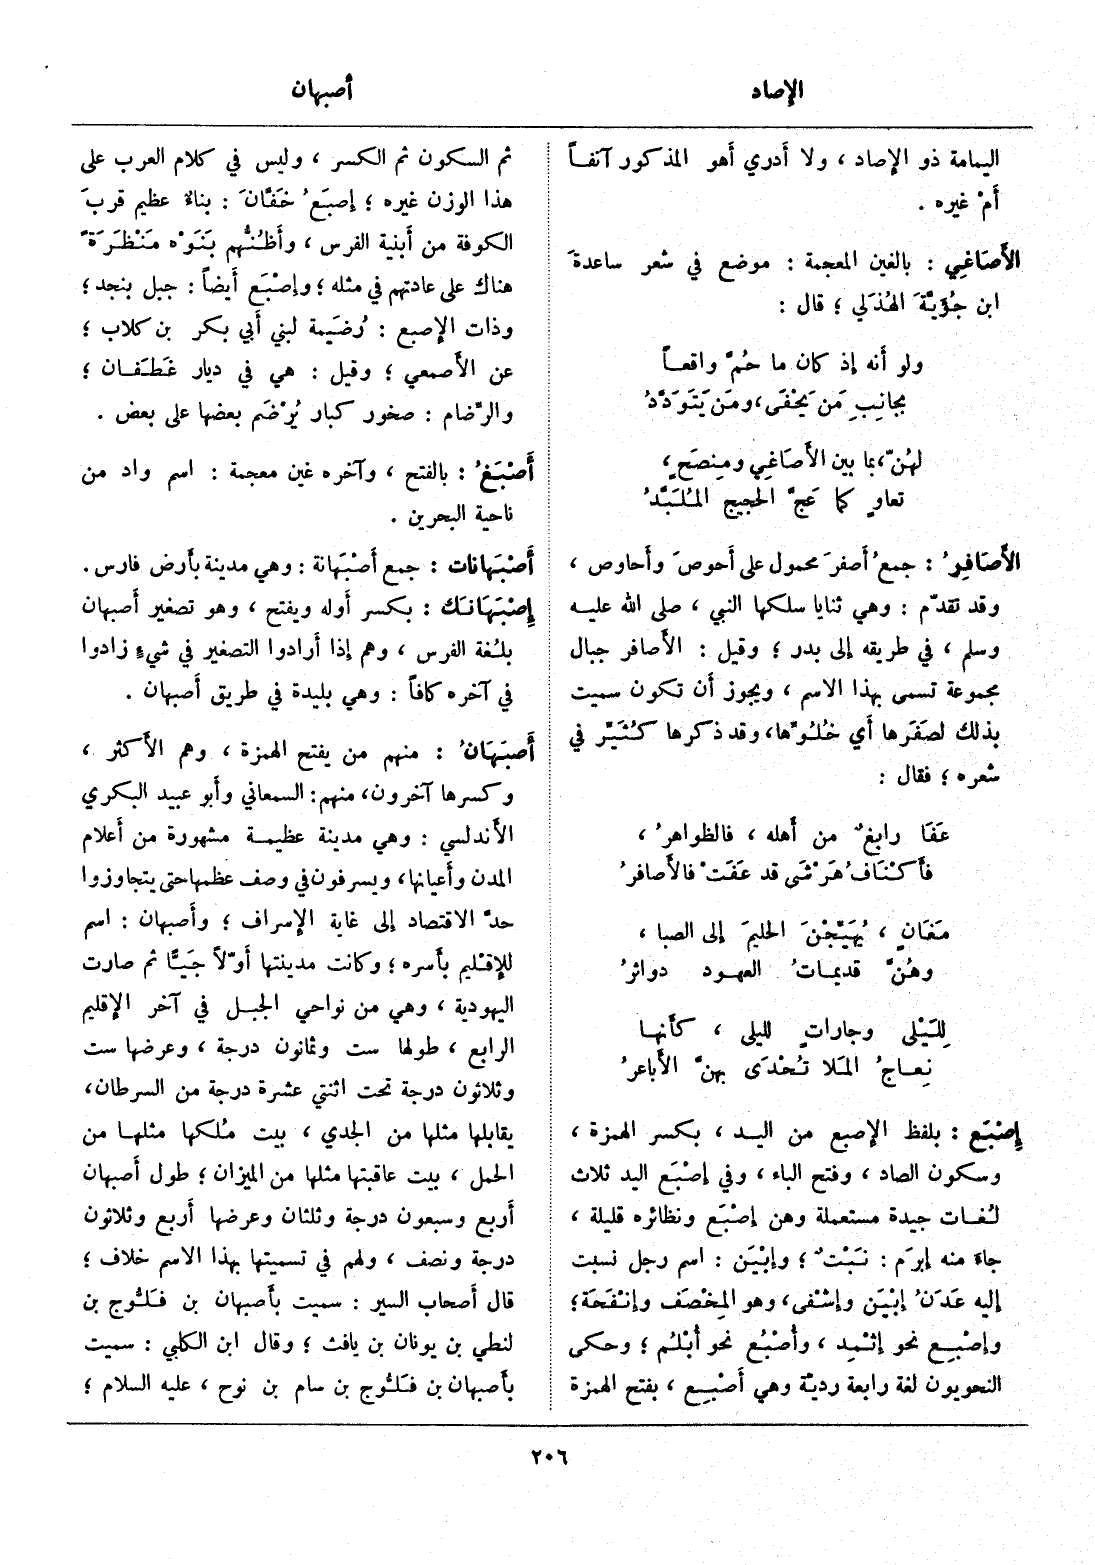 الإصاد
أصبهان
اليمامة ذو الإصاد ، ولا أدري أهو المذكور آنفاً
أمْ غيره .
الأَصَاغِي : بالغين المعجمة : موضع في شعر ساعدةَ
ابن جُؤيَّةَ الهُذَلي ؛ قال :
ولو أنه إذ كان ما حُمَّ واقعاً
بجانِبِ مَن يَحْفَى ، ومَن يَتَوَدَّدُ
لهُنّ ، بما بين الأَصَاغِي ومِنصَحٍ ،
تعاوٍ كما عَجَّ الحجيج المُلَبَّدُ
الأَصَافِرُ : جمعُ أصفرَ محمول على أحوصَ وأحاوص ،
وقد تقدّم : وهي ثنايا سلكها النبي ، صلى الله عليه
وسلم ، في طريقه إلى بدر ؛ وقيل : الأصافر جبال
مجموعة تسمى بهذا الاسم ، ويجوز أن تكون سميت
بذلك لصَفَرها أي خُلُوّها ، وقد ذكرها كُثَيّر في
شعره ؛ فقال :
عَفَا رابغٌ من أهله ، فالظواهرُ ،
فأكنافُ هَرْشَى قد عَفَتْ فالأصافرُ
مَغَانٍ ، يُهَيّجْنَ الحليمَ إلى الصبا ،
وهُنَّ قديماتُ العهود دواثرُ
لِلَيْلى وجاراتٍ لليلى ، كأنها
نِعاجُ المَلا تُحْدَى بهنّ الأباعرُ
إصْبَع : بلفظ الإصبع من اليد ، بكسر الهمزة ،
وسكون الصاد ، وفتح الباء ، وفي إصْبَع اليد ثلاث
لُغات جيدة مستعملة وهن إصْبَع ونظائره قليلة ،
جاءَ منه إبرَم : نَبْتٌ ؛ وإبْيَن : اسم رجل نسبت
إليه عَدَنُ إبْيَن وإشْفى ، وهو المِخْصَف وإنْفَحَة ؛
وإصْبِع نحو إثْمِد ، وأُصْبُع نحو أُبْلُم ؛ وحكى
النحويون لغة رابعة رديّة وهي أَصْبِع ، بفتح الهمزة
ثم السكون ثم الكسر ، وليس في كلام العرب على
هذا الوزن غيره ؛ إصبَعُ خَفّانَ : بناءٌ عظيم قربَ
الكوفة من أبنية الفرس ، وأظُنُّهم بَنَوْه مَنْظَرَةً
هناك على عادتهم في مثله ؛ وإصْبَع أيضاً : جبل بنجد ؛
وذات الإصبع : رُضَيمة لبني أبي بكر بن كلاب ؛
عن الأصمعي ؛ وقيل : هي في ديار غَطَفان ؛
والرّضام : صخور كبار يُرْضَم بعضها على بعض .
أَصْبَغُ : بالفتح ، وآخره غين معجمة : اسم واد من
ناحية البحرين .
أَصْبَهانات : جمع أصْبَهانة : وهي مدينة بأرض فارس .
إصْبَهَانَك : بكسر أوله ويفتح ، وهو تصغير أصبهان
بلُغة الفرس ، وهم إذا أرادوا التصغير في شيءٍ زادوا
في آخره كافاً : وهي بليدة في طريق أصبهان .
أَصبَهَانُ : منهم من يفتح الهمزة ، وهم الأكثر ،
وكسرها آخرون ، منهم : السمعاني وأبو عبيد البكري
الأندلسي : وهي مدينة عظيمة مشهورة من أعلام
المدن وأعيانها ، ويسرفون في وصف عظمها حتى يتجاوزوا
حدَّ الاقتصاد إلى غاية الإسراف ؛ وأصبهان : اسم
للإقليم بأسره ؛ وكانت مدينتها أوّلاً جَيّاً ثم صارت
اليهودية ، وهي من نواحي الجبل في آخر الإقليم
الرابع ، طولها ست وثمانون درجة ، وعرضها ست
وثلاثون درجة تحت اثنتي عشرة درجة من السرطان ،
يقابلها مثلها من الجدي ، بيت مُلكها مثلها من
الحمل ، بيت عاقبتها مثلها من الميزان ؛ طول أصبهان
أربع وسبعون درجة وثلثان وعرضها أربع وثلاثون
درجة ونصف ، ولهم في تسميتها بهذا الاسم خلاف ؛
قال أصحاب السير : سميت بأصبهان بن فَلُّوج بن
لنطي بن يونان بن يافث ؛ وقال ابن الكلبي : سميت
بأصبهان بن فَلُّوج بن سام بن نوح ، عليه السلام ؛
٢٠٦